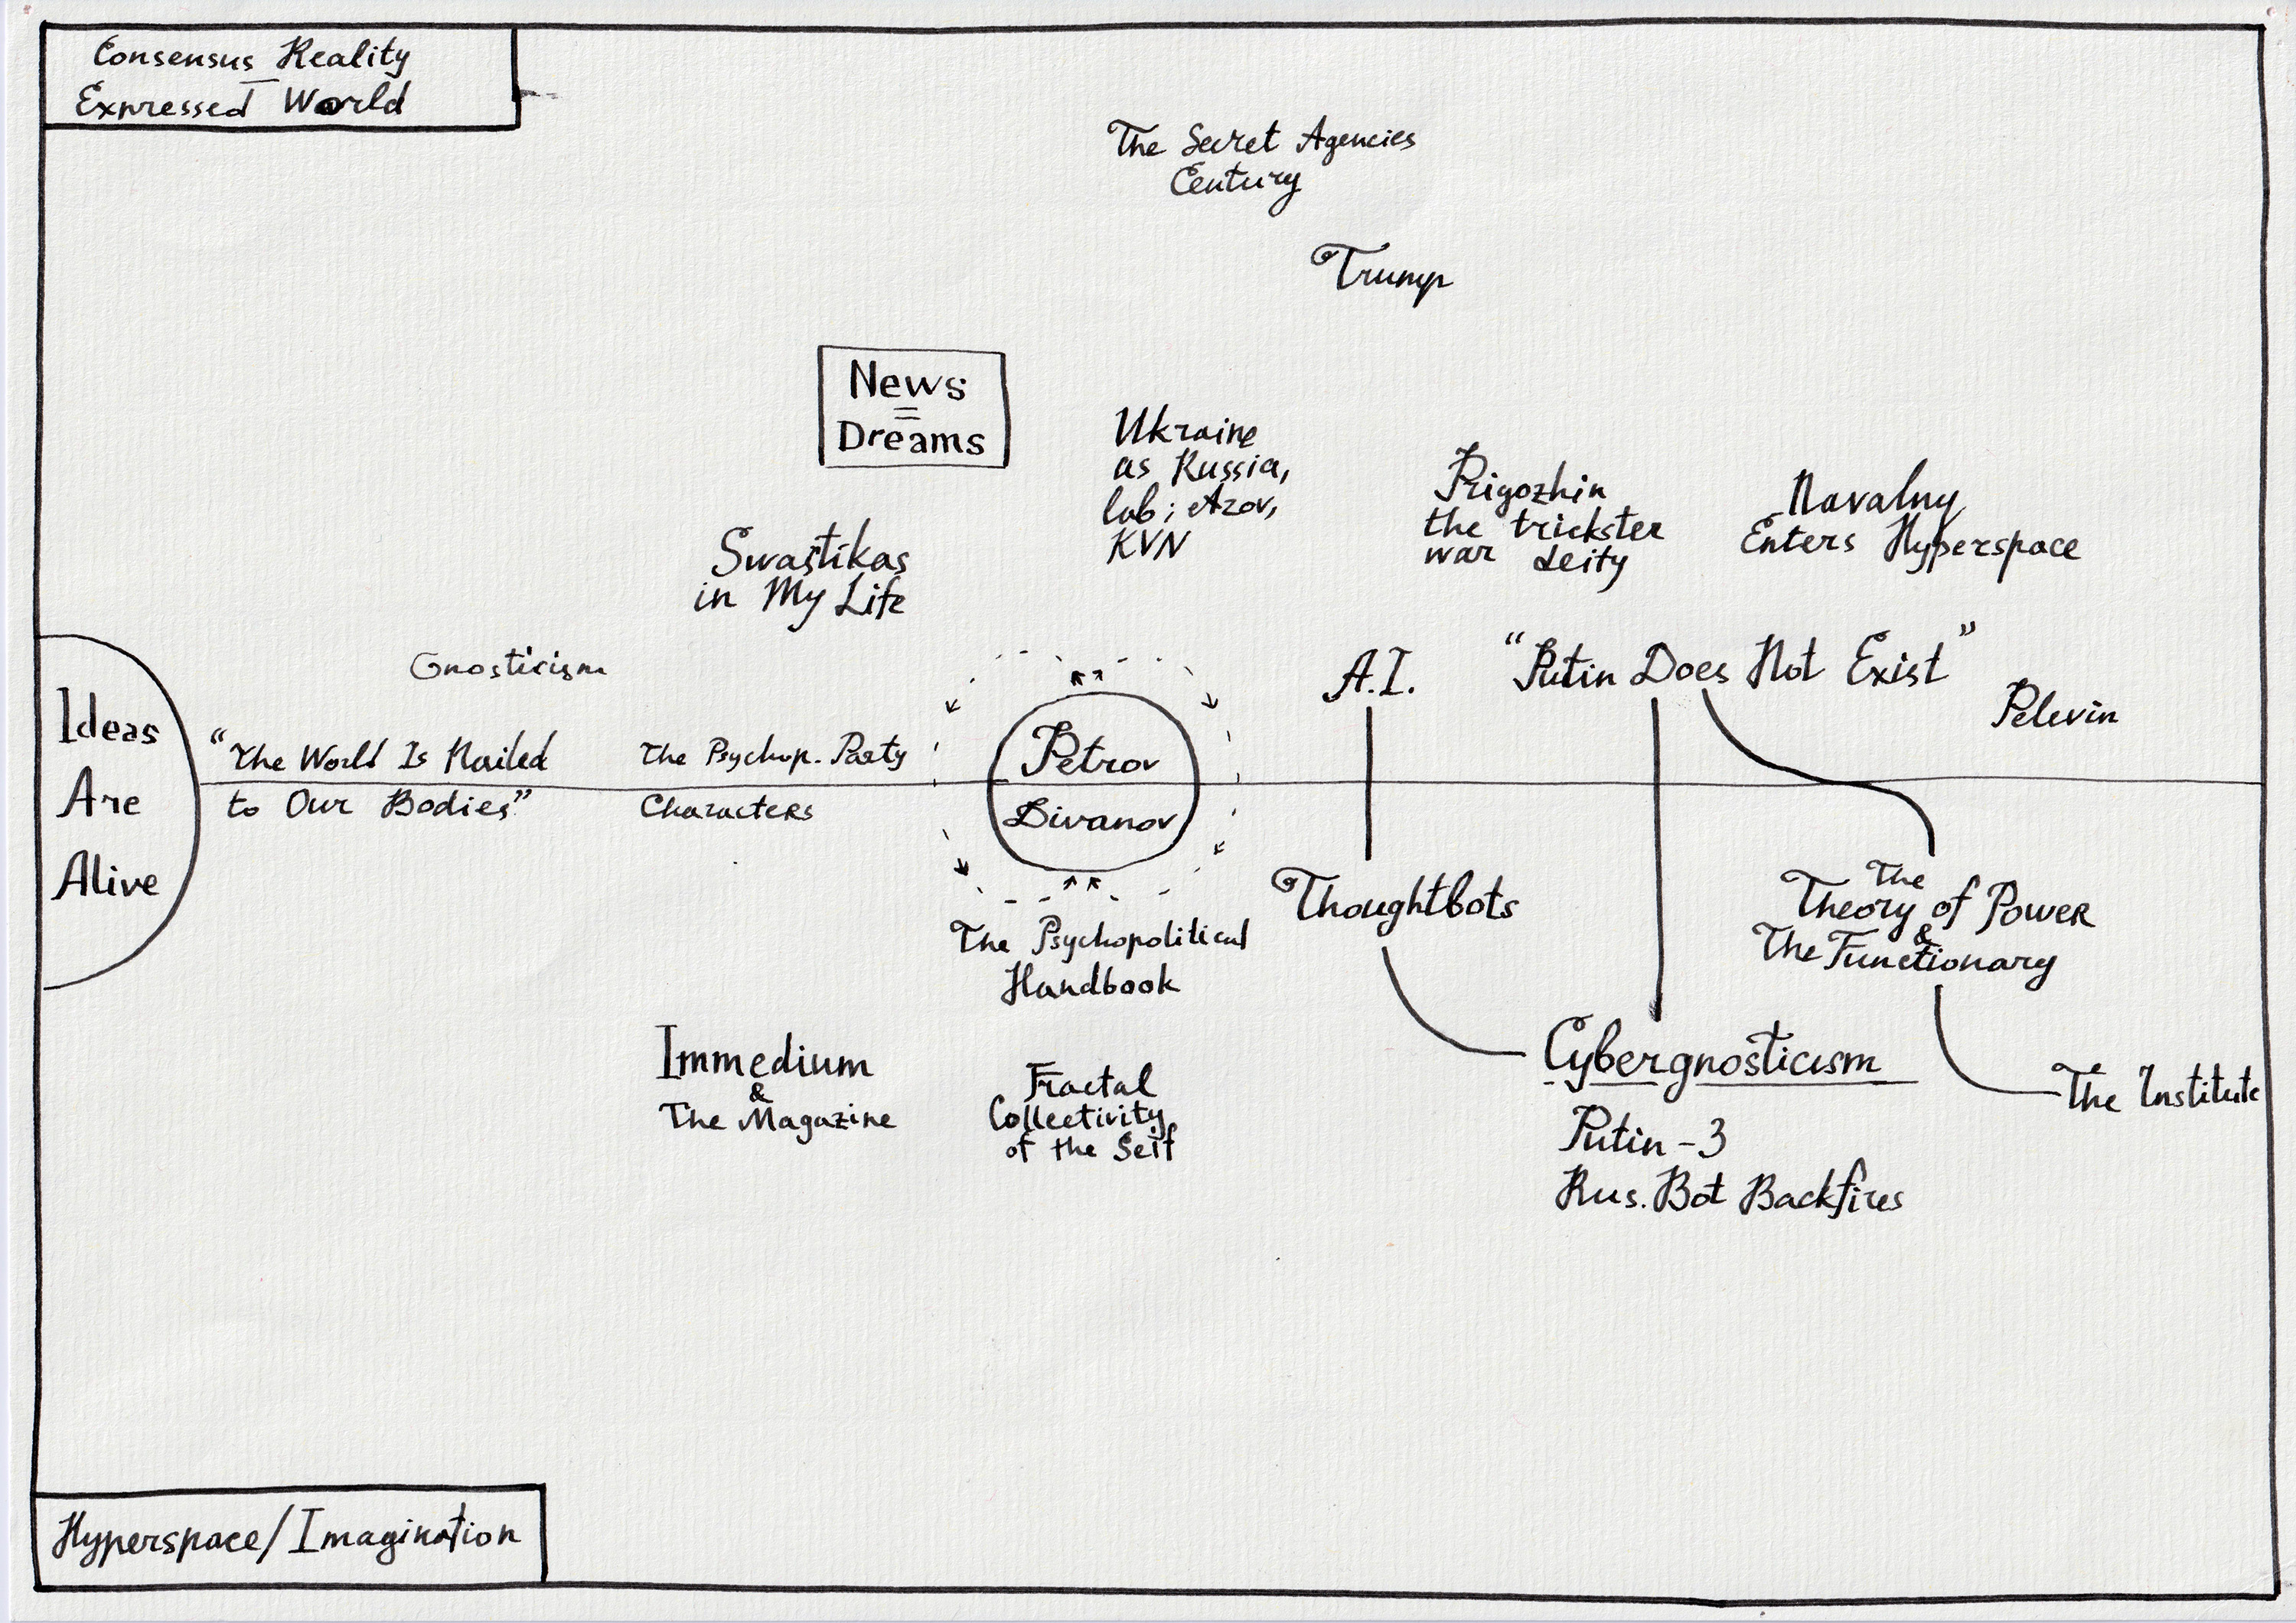 Consensus Reality
Expressed World
The Secret Agencies
Century
Trump
News
=
Dreams
Ukraine
as Russia,
lab; Azov,
KVN
Prigozhin
the trickster
war deity
Navalny
Enters Hyperspace
Swastikas
in My Life
Gnosticism
Ideas
Are
Alive
"The World Is Nailed
to Our Bodies"
The Psychop. Party
Characters
Petrov
Divanov
A.I.
"Putin Does Not Exist"
Pelevin
Thoughtbots
The
Theory of Power
&
The Functionary
The Psychopolitical
Handbook
Immedium
&
The Magazine
Fractal
Collectivity
of the Self
Cybergnosticism
Putin-3
Rus. Bot Backfires
The Institute
Hyperspace/Imagination